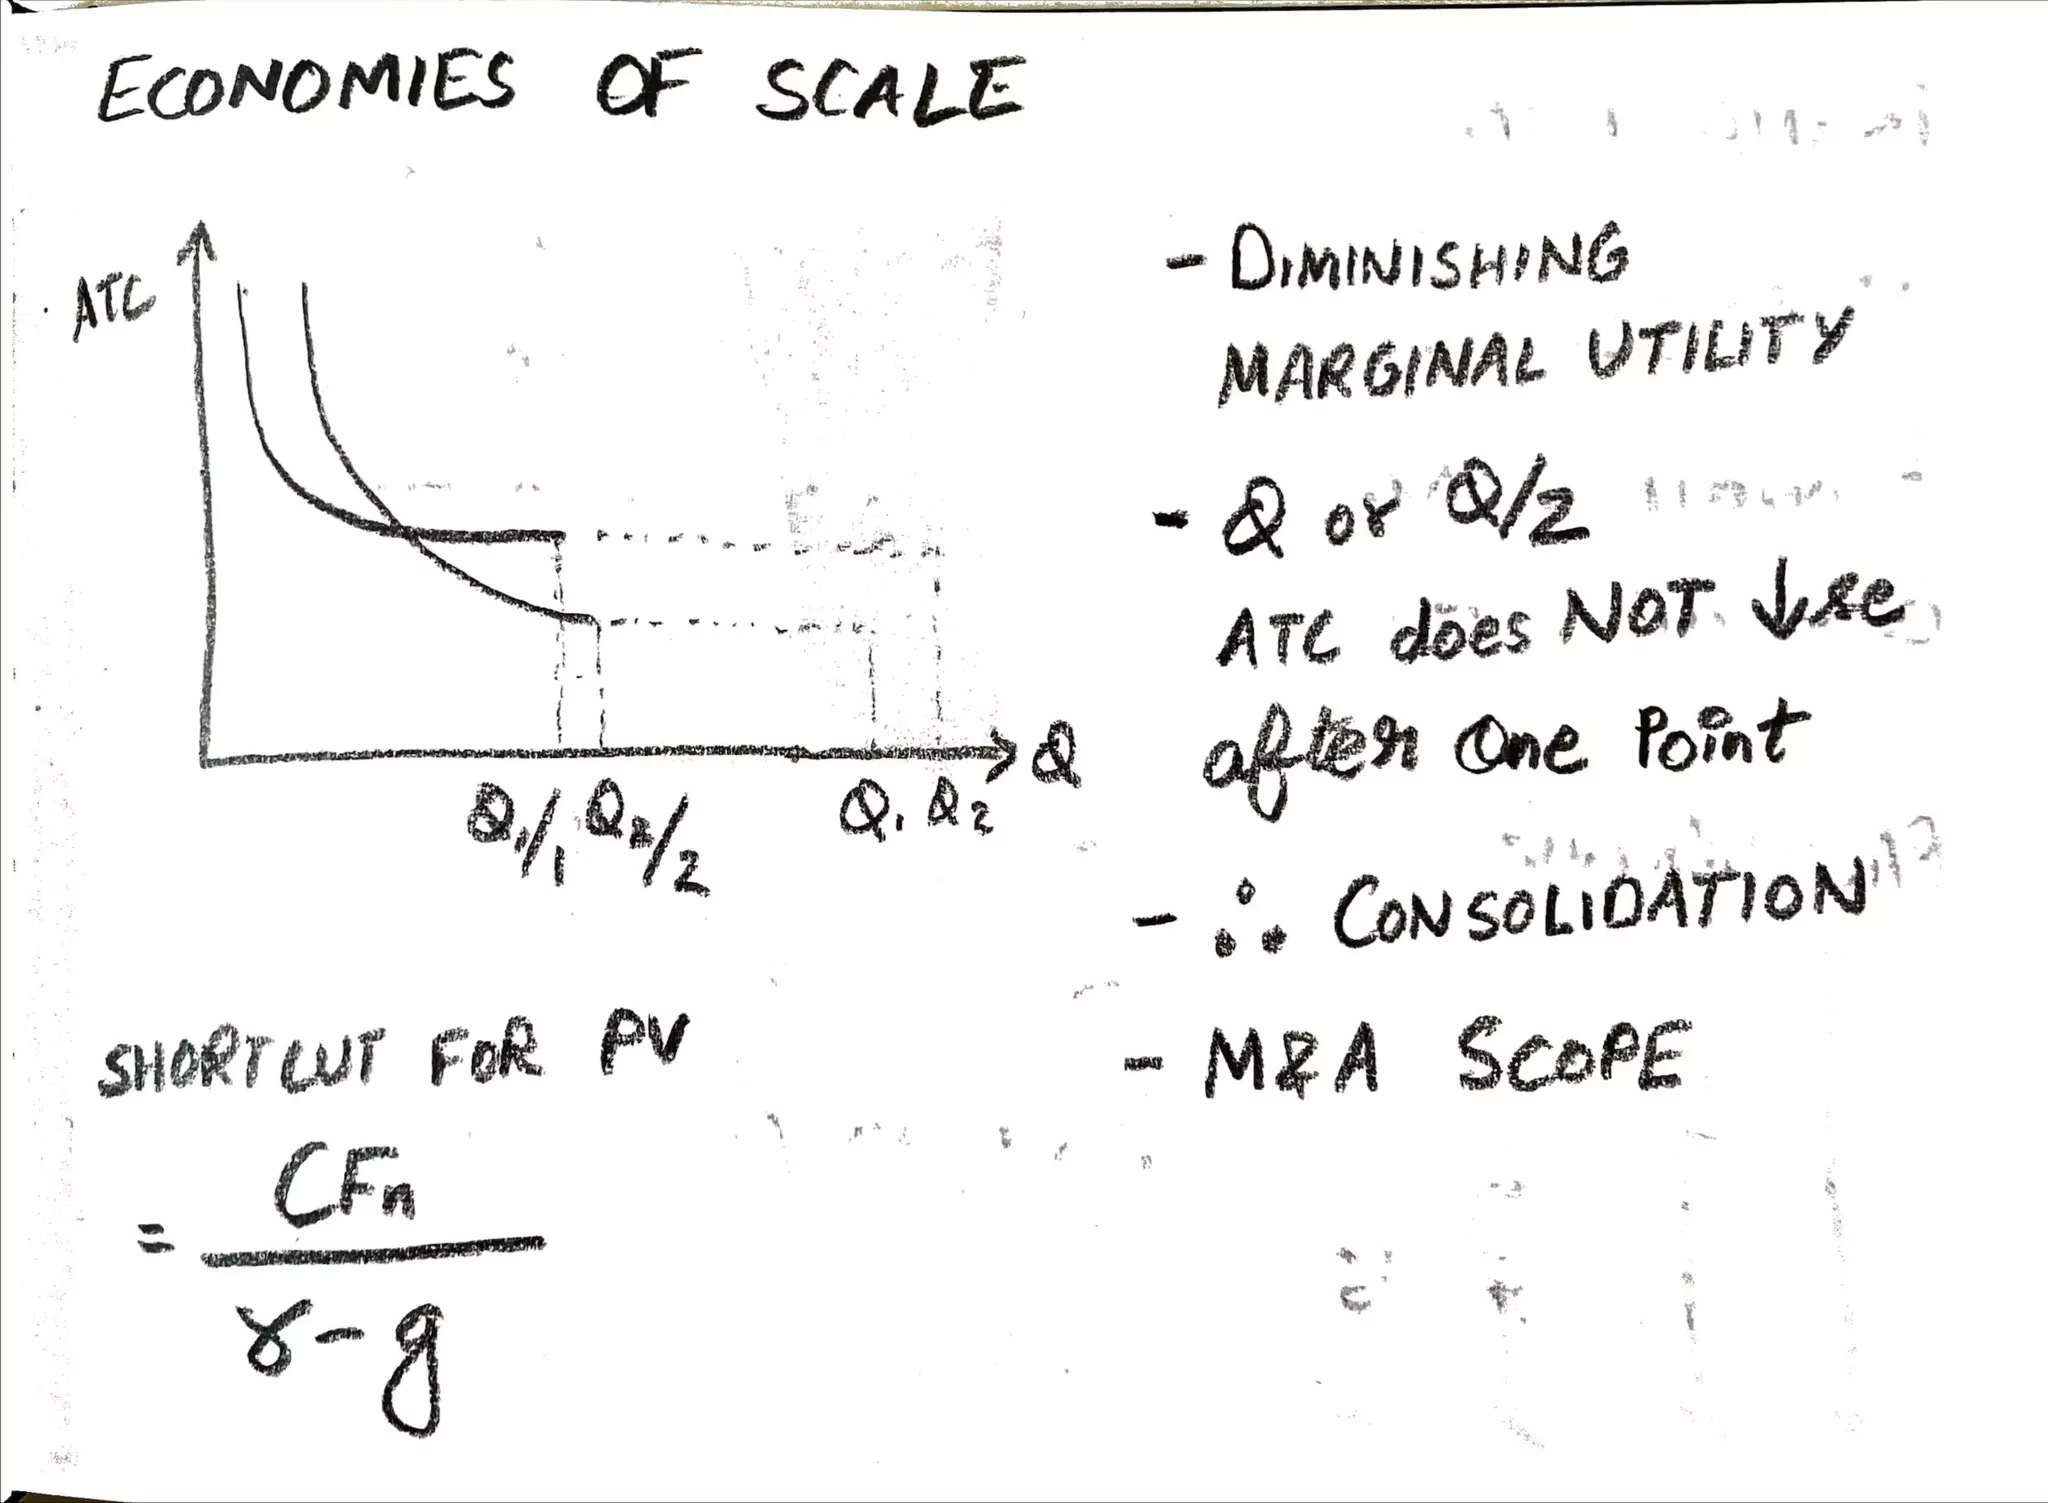 ECONOMIES OF SCALE
ATC
Q
Q₁/1 Q₂/2 Q₁ Q₂
- DIMINISHING
MARGINAL UTILITY
- Q or Q/2
ATC does NOT ↓se
after One Point
- ∴ CONSOLIDATION
- M&A SCOPE
SHORTCUT FOR PV
= CFn
r-g